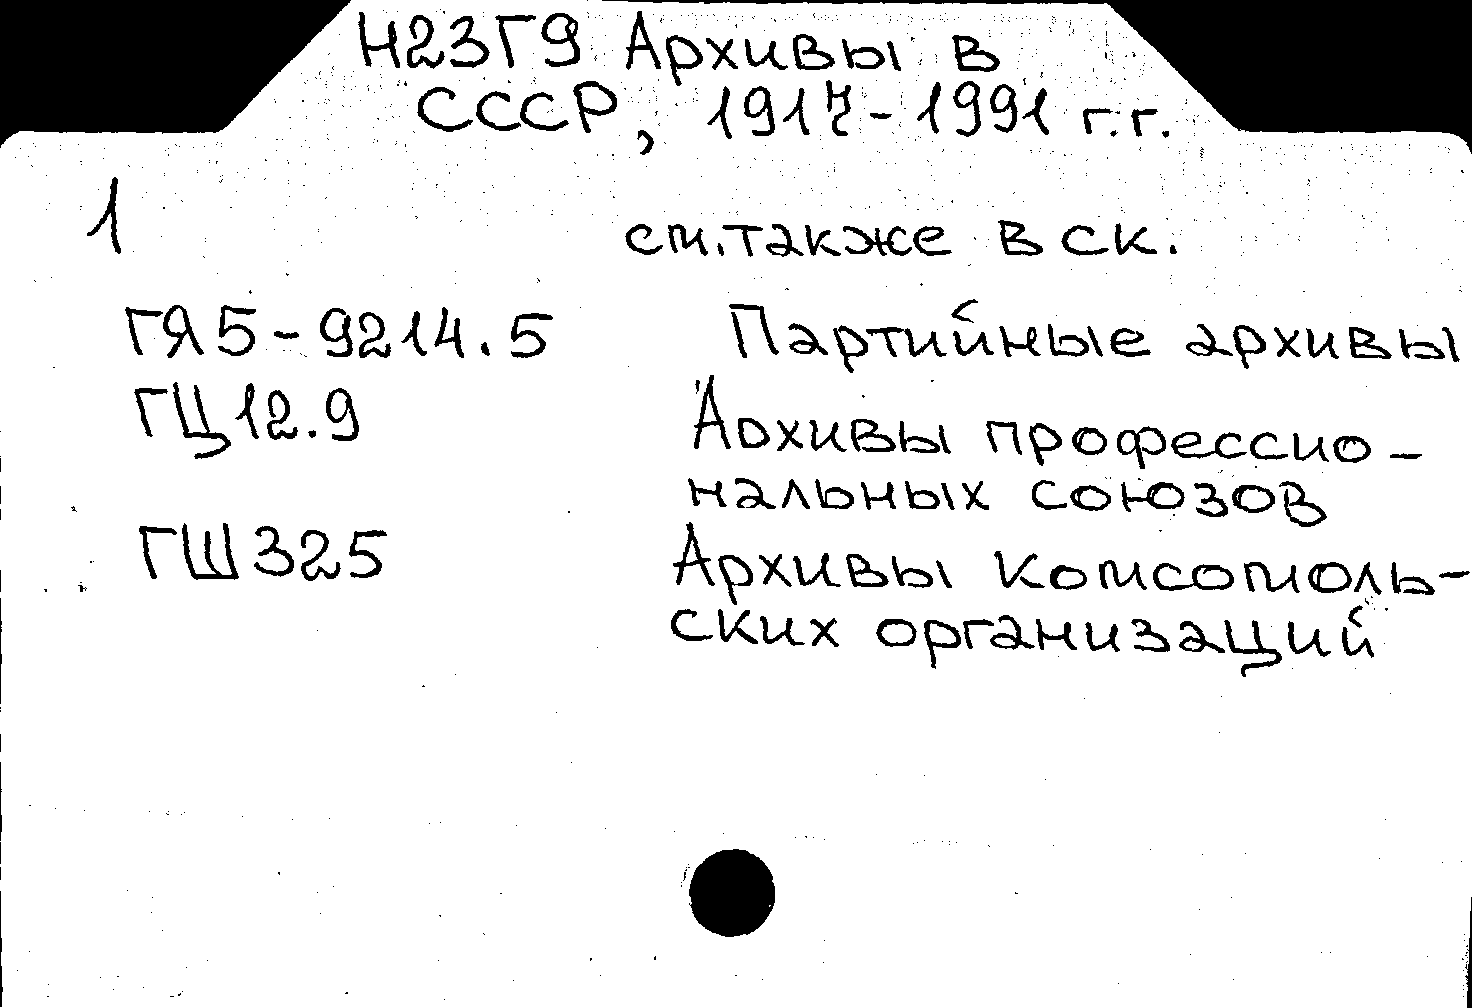 Н23Г9 Архивы в
СССР, 1917-1991 г.г.
1
см. также в ск.
ГЯ5-9214.5 Партийные архивы
ГЦ12.9 Архивы профессио-
нальных союзов
ГШ325 Архивы комсомоль-
ских организаций